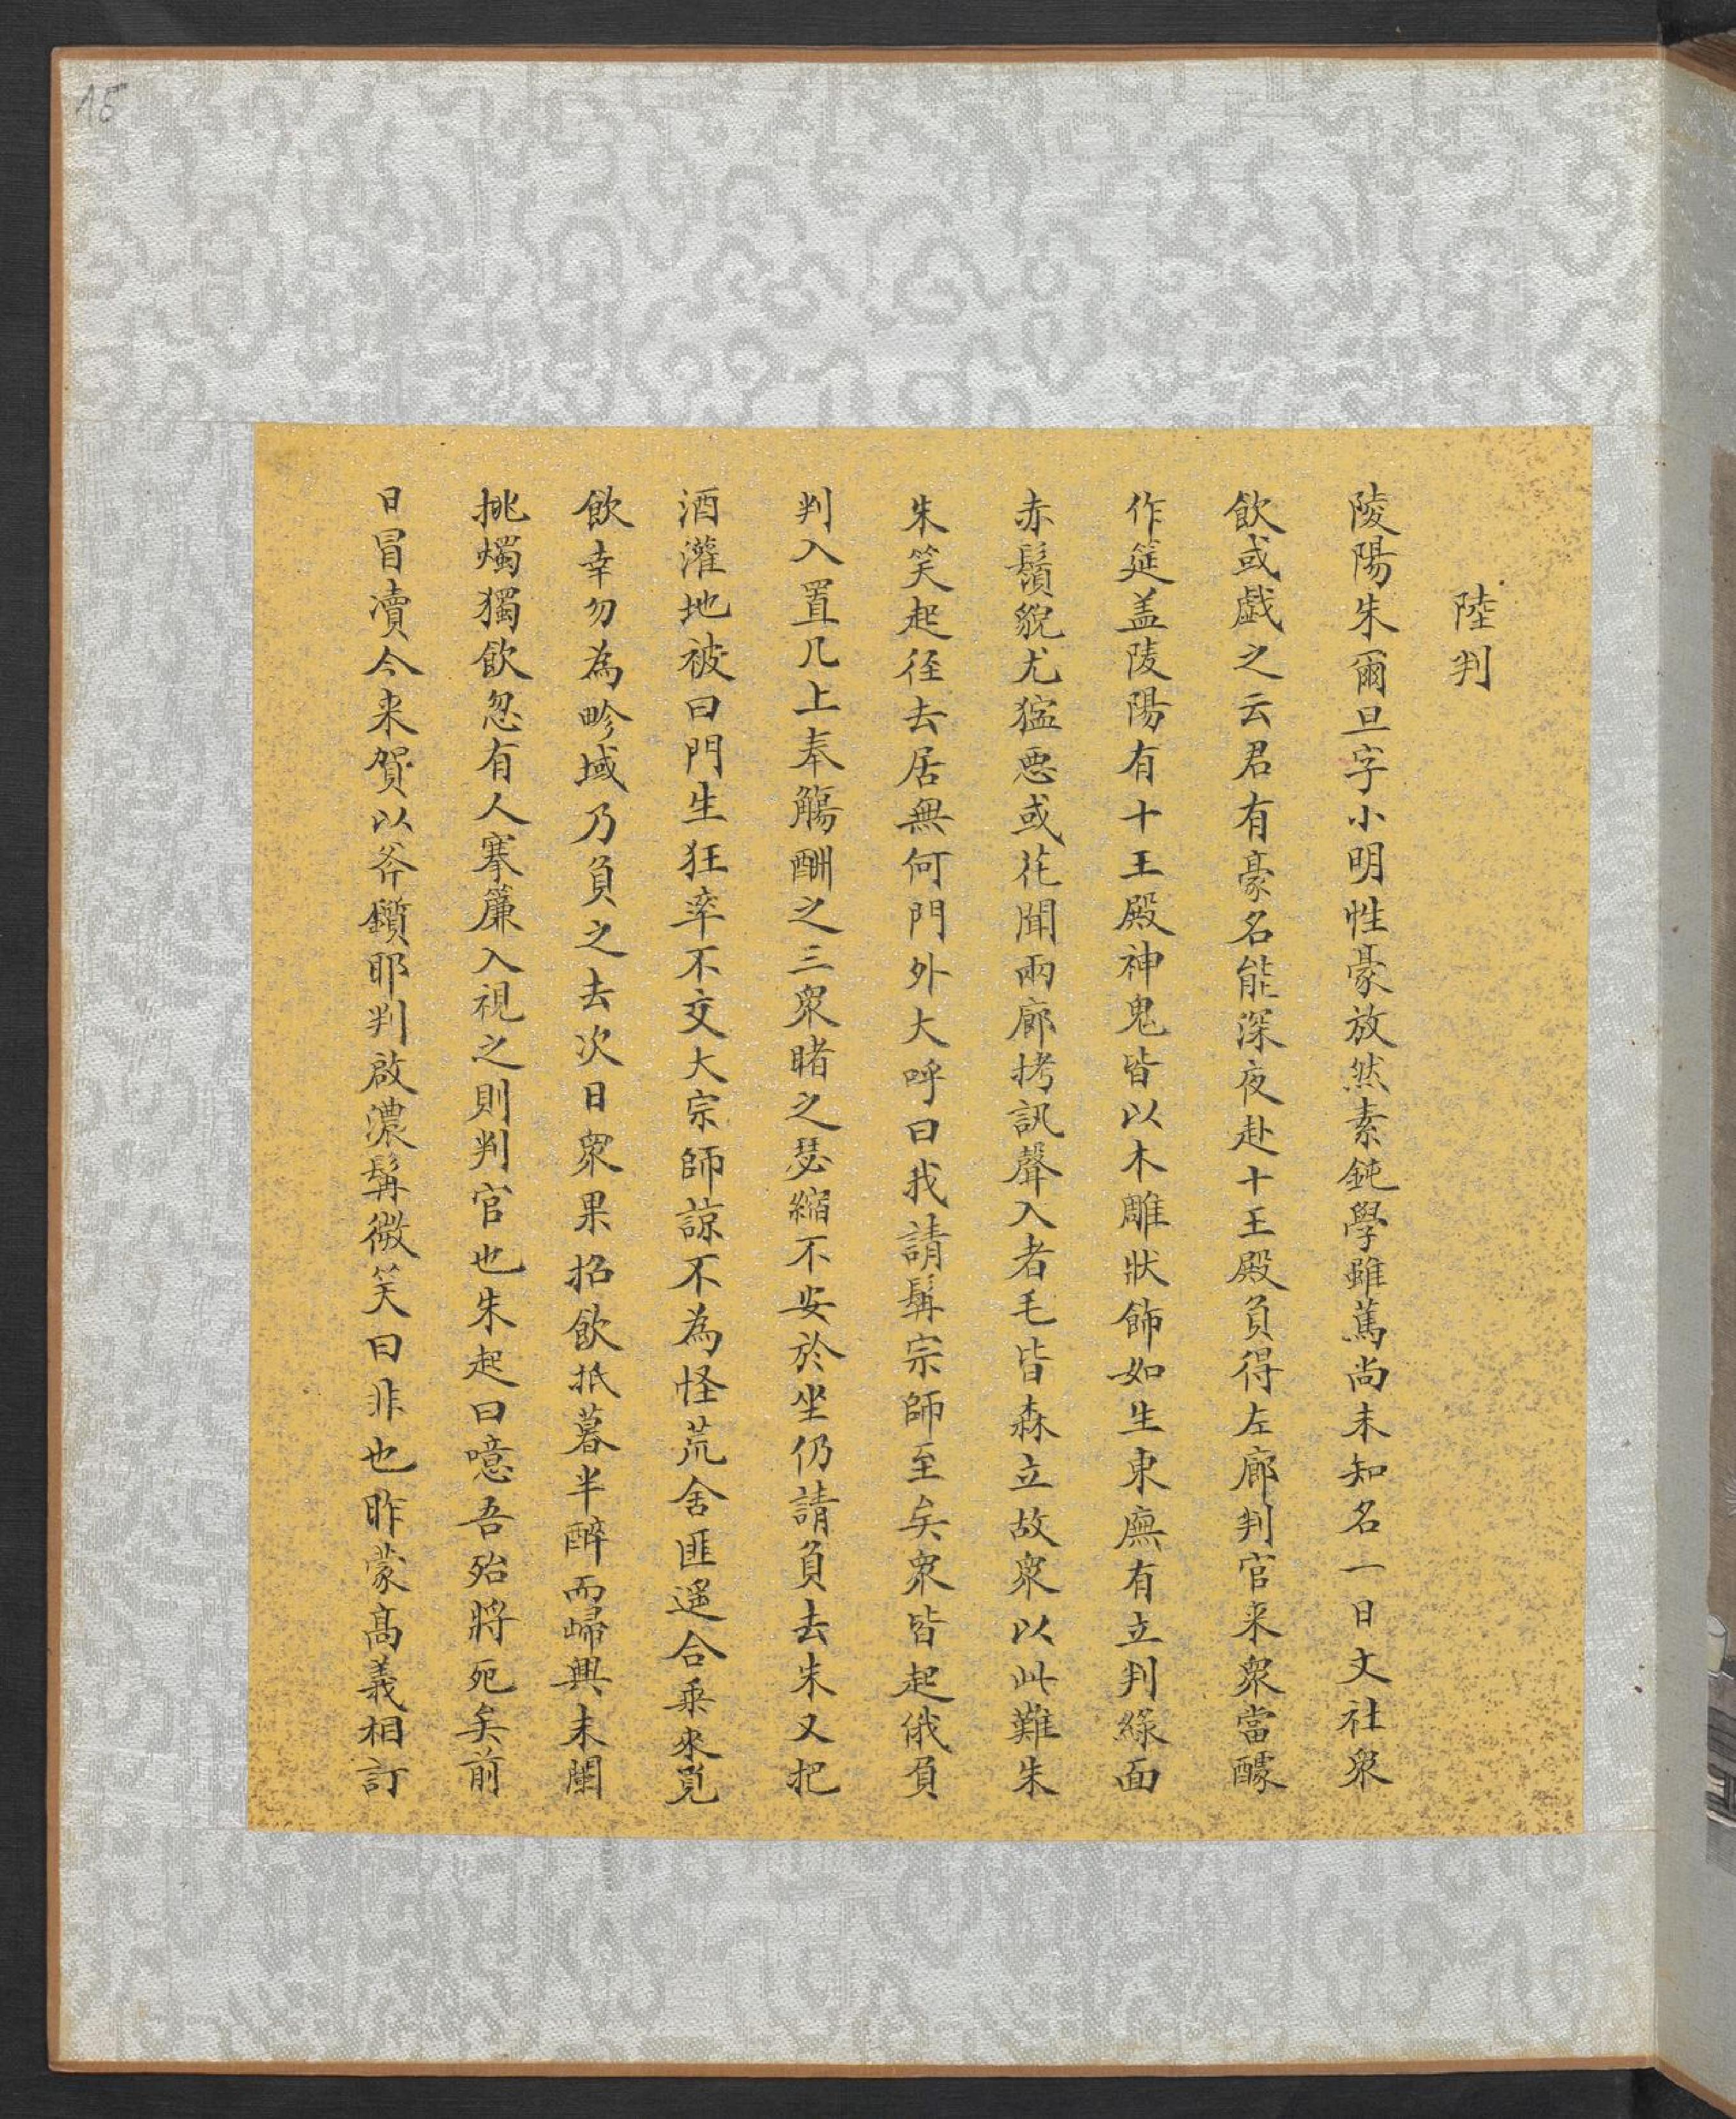 15
陸判
陵陽朱爾旦字小明性豪放然素鈍學雖篤尚未知名一日文社衆
飲或戲之云君有豪名能深夜赴十王殿負得左廊判官来衆當醵
作筵盖陵陽有十王殿神鬼皆以木雕狀飾如生東廡有立判緑面
赤鬚貌尤獰惡或花聞兩廊拷訊聲入者毛皆森立故衆以此難朱
朱笑起徑去居無何門外大呼曰我請髯宗師至矣衆皆起俄負
判入置几上奉觴酬之三衆睹之瑟縮不安於坐仍請負去朱又把
酒灌地被曰門生狂率不文大宗師諒不為怪荒舍匪遥合乗來覓
飲幸勿為畛域乃負之去次日衆果招飲抵暮半醉而歸興未闌
挑燭獨飲忽有人搴簾入視之則判官也朱起曰噫吾殆將死矣前
日冒瀆今来賀以斧鑕耶判啟濃髯微笑曰非也昨蒙高義相訂